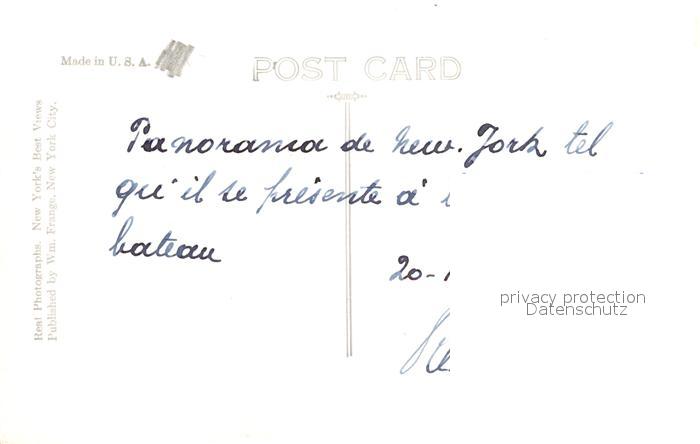 Made in U. S. A.
POST CARD
Real Photographs. New York's Best Views
Published by Wm. Frange, New York City.
Panorama de New-York tel
qu'il se présente à
bateau
20-
privacy protection
Datenschutz